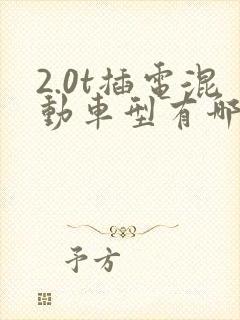 2.0t插電混
動車型有哪
予方